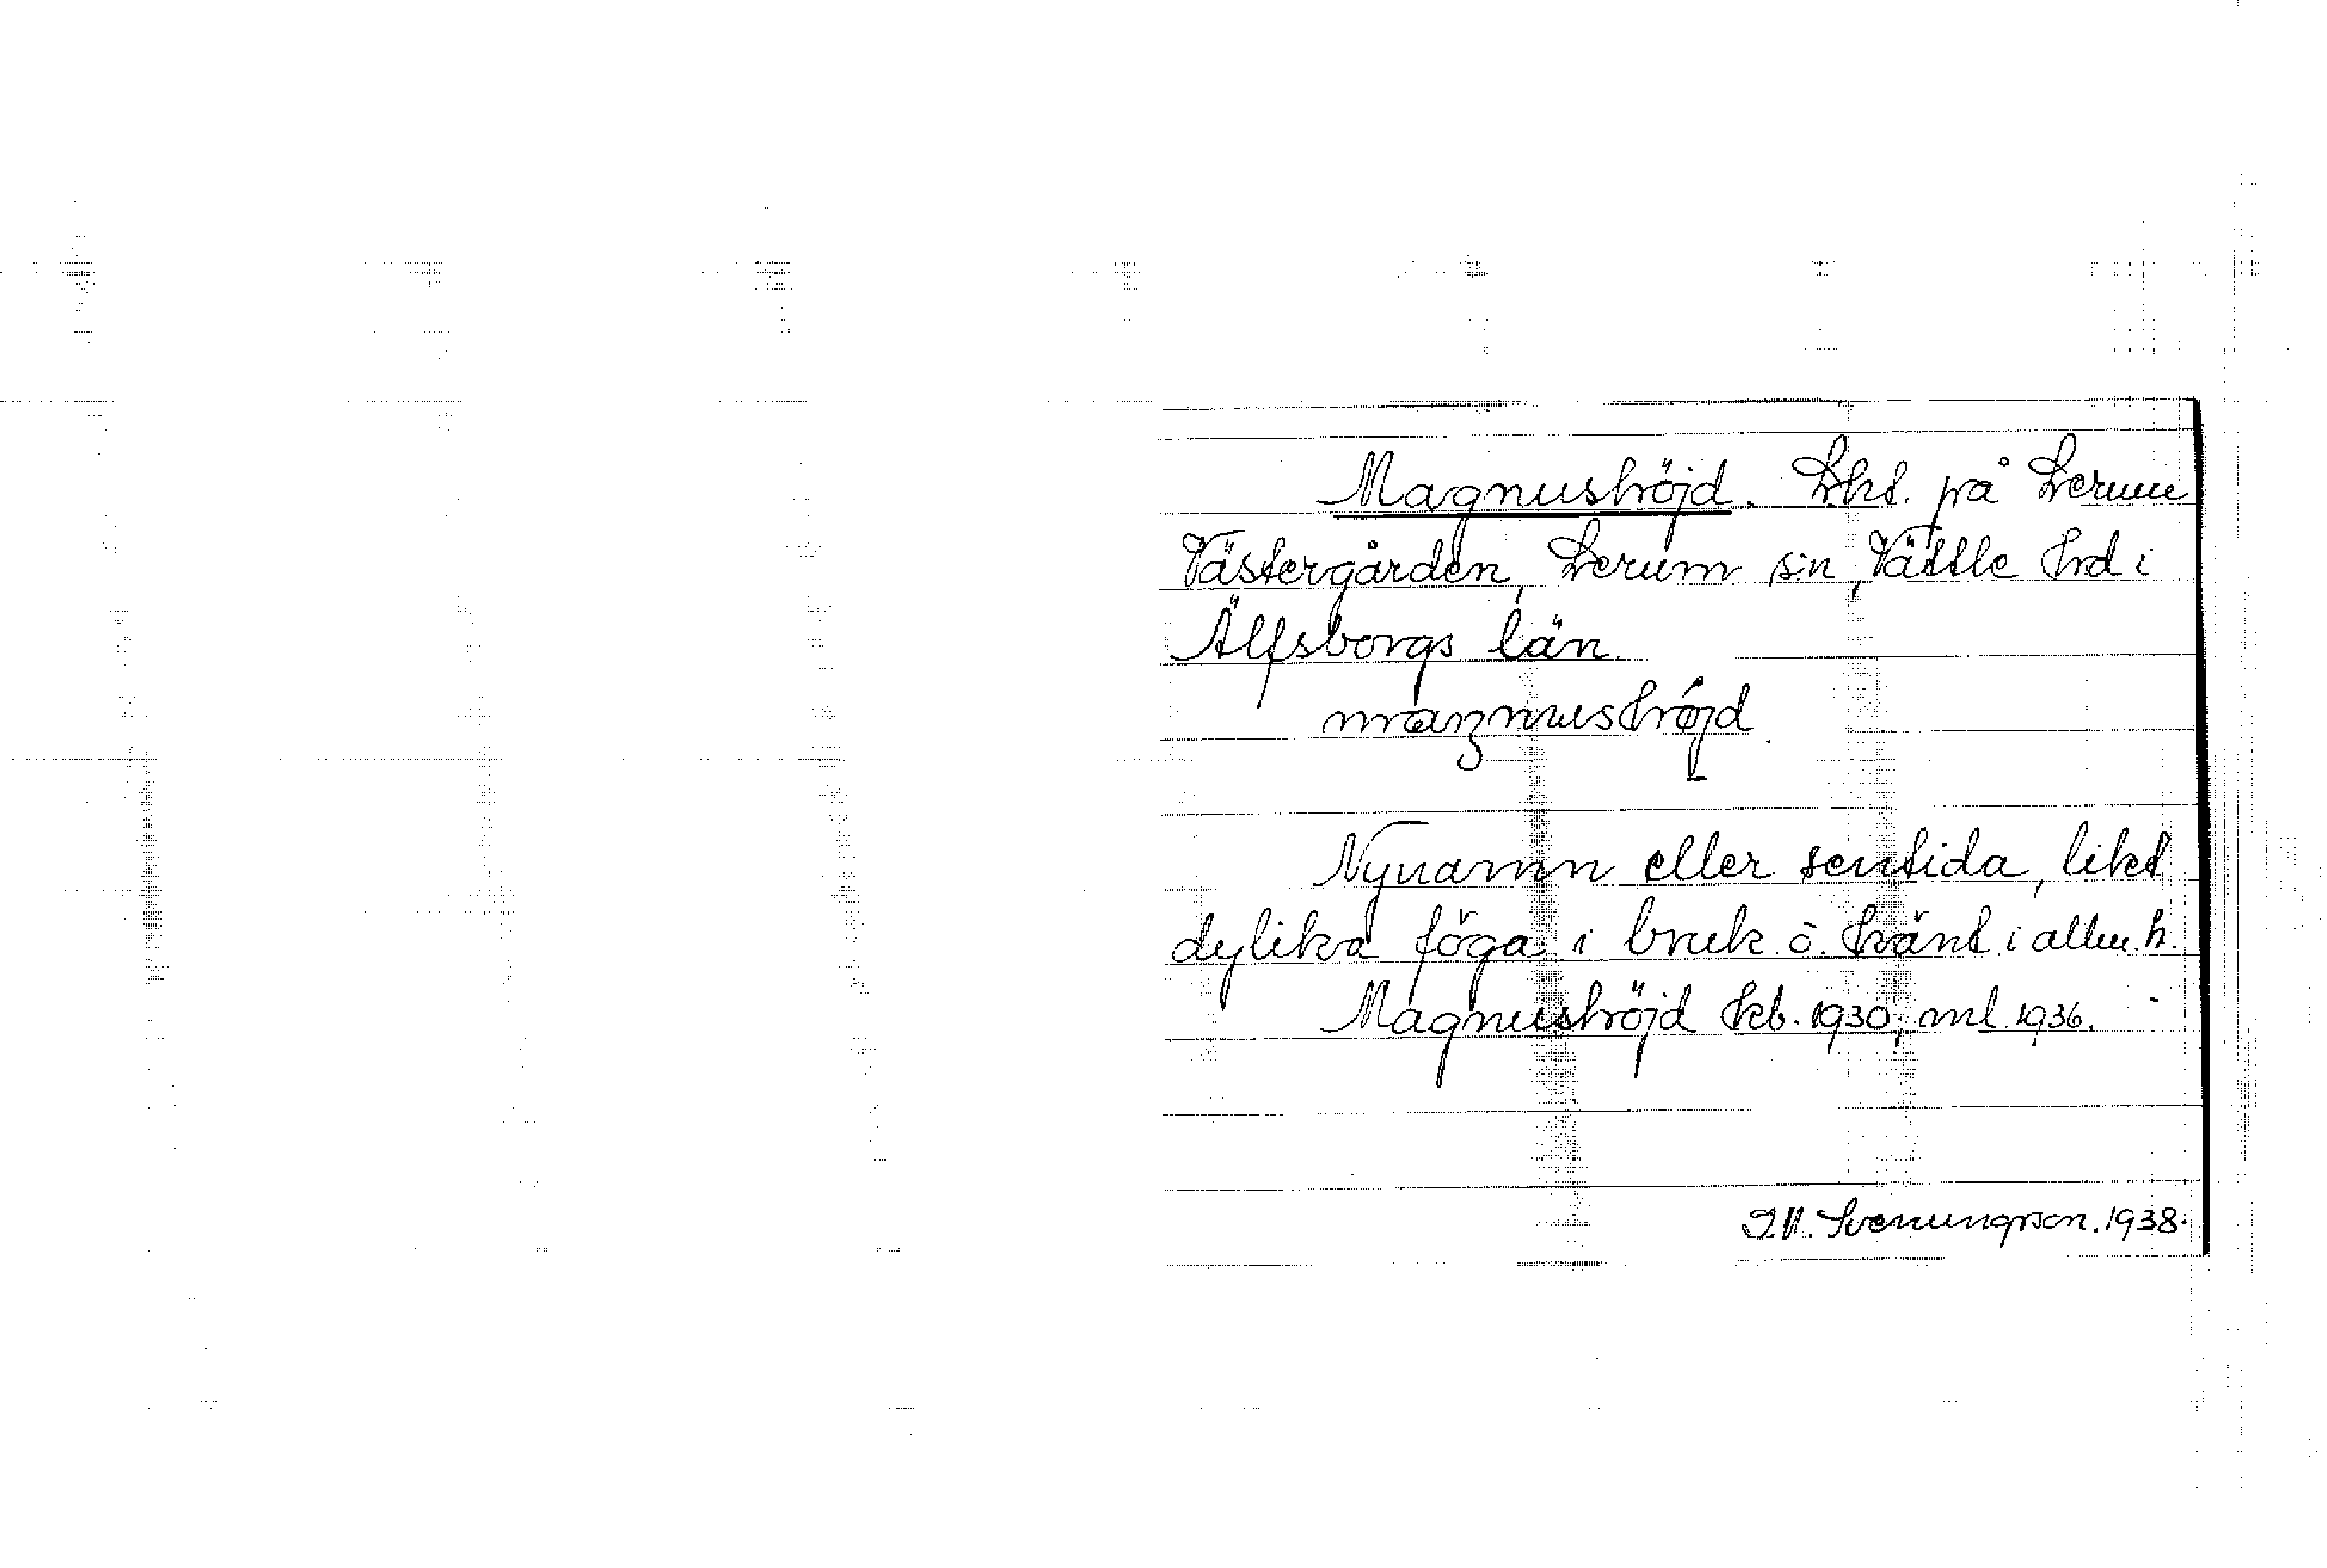 Magnushöjd. Lht. på Lerum
Västergården, Lerum sn, Vättle hd i
Älfsborgs län.
Nynamn eller sentida, likt
dylika föga i bruk o. känt i allm.h.
Magnushöjd kb. 1930, ml. 1936.
Svenungsson. 1938.